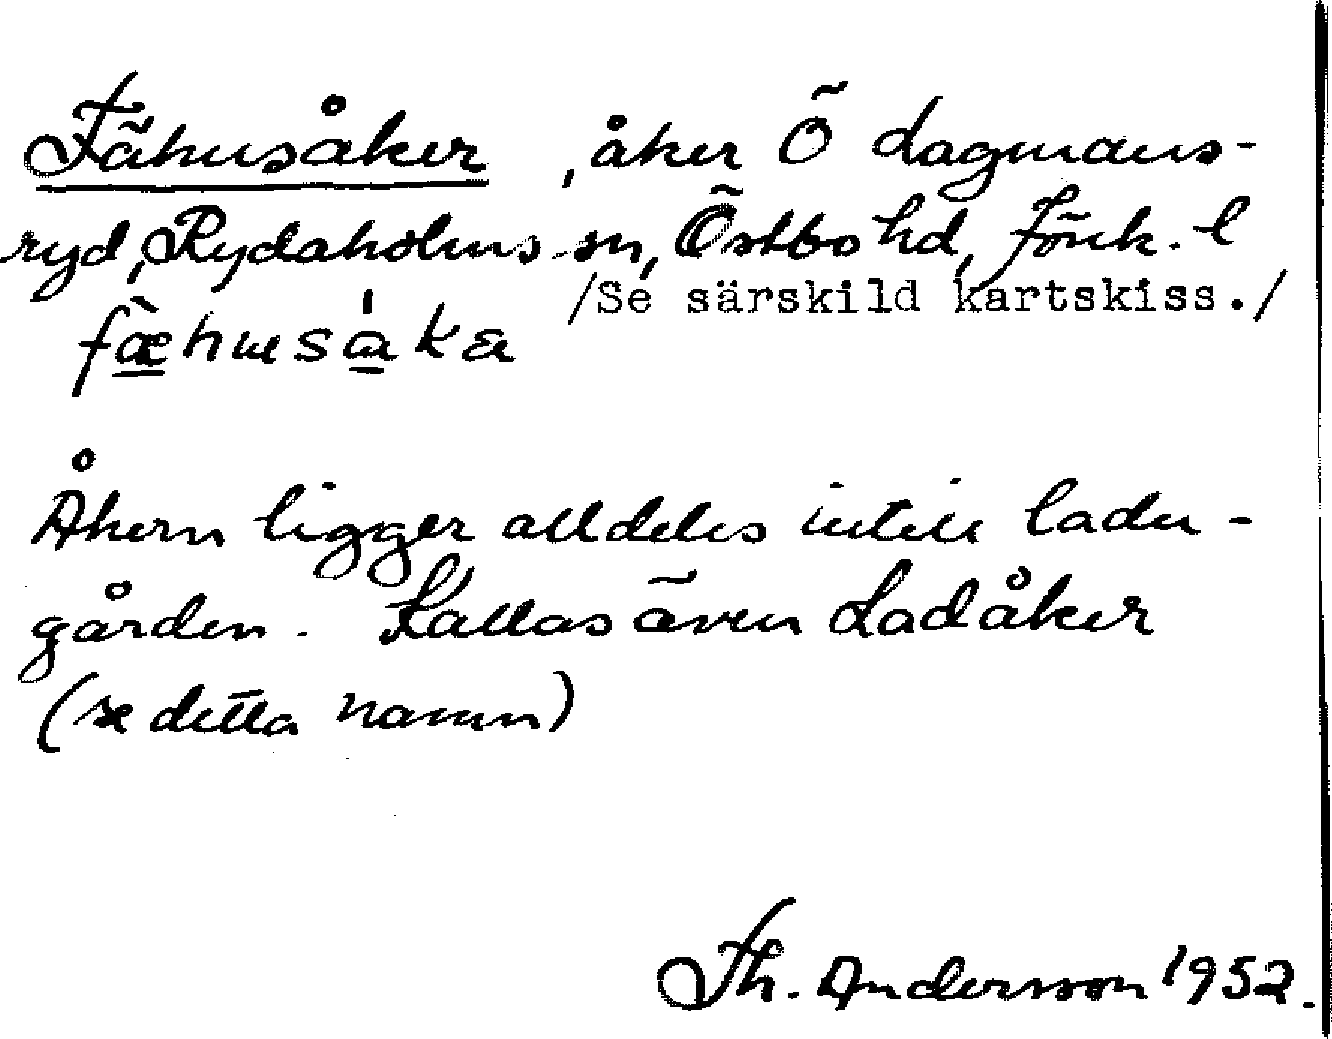 Fähusåker, åker Ö Lagmans-
ryd, Rydaholms sn, Östbo hd, Jönk. l
/Se särskild kartskiss./
Åkern ligger alldeles intill ladu-
gården. Kallas även Ladåker
(se detta namn)
Th. Andersson 1952.